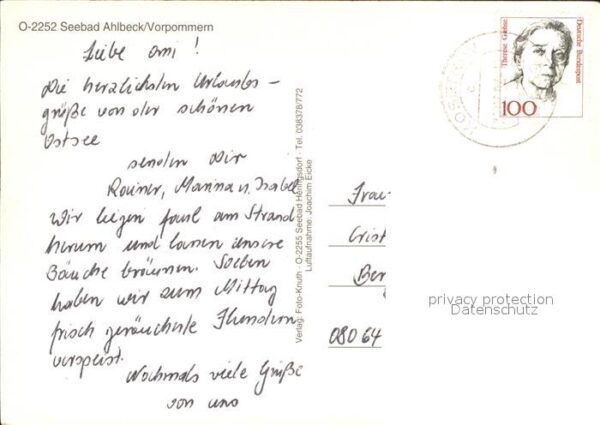 O-2252 Seebad Ahlbeck/Vorpommern
Liebe Omi!
Die herzlichsten Urlaubs-
grüße von der schönen
Ostsee
senden Dir
Rainer, Marina u. Isabel
Wir liegen faul am Strand
herum und lassen unsere
Bäuche bräunen. Soeben
haben wir zum Mittag
frisch geräucherte Flundern
verspeist.
Nochmals viele Grüße
von uns
Verlag: Foto-Knuth · O-2255 Seebad Heringsdorf · Tel. 038378/772
Luftaufnahme: Joachim Eicke
Therese Giehse
Deutsche Bundespost
100
Frau
Crist
Ber
O8064
privacy protection
Datenschutz